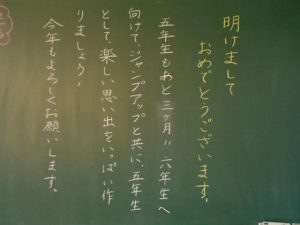 明けまして
おめでとうございます。
五年生もあと三ヶ月!! 六年生へ
向けて、ジャンプアップと共に、五年生
として、楽しい思い出をいっぱい作
りましょう!
今年もよろしくお願いします。